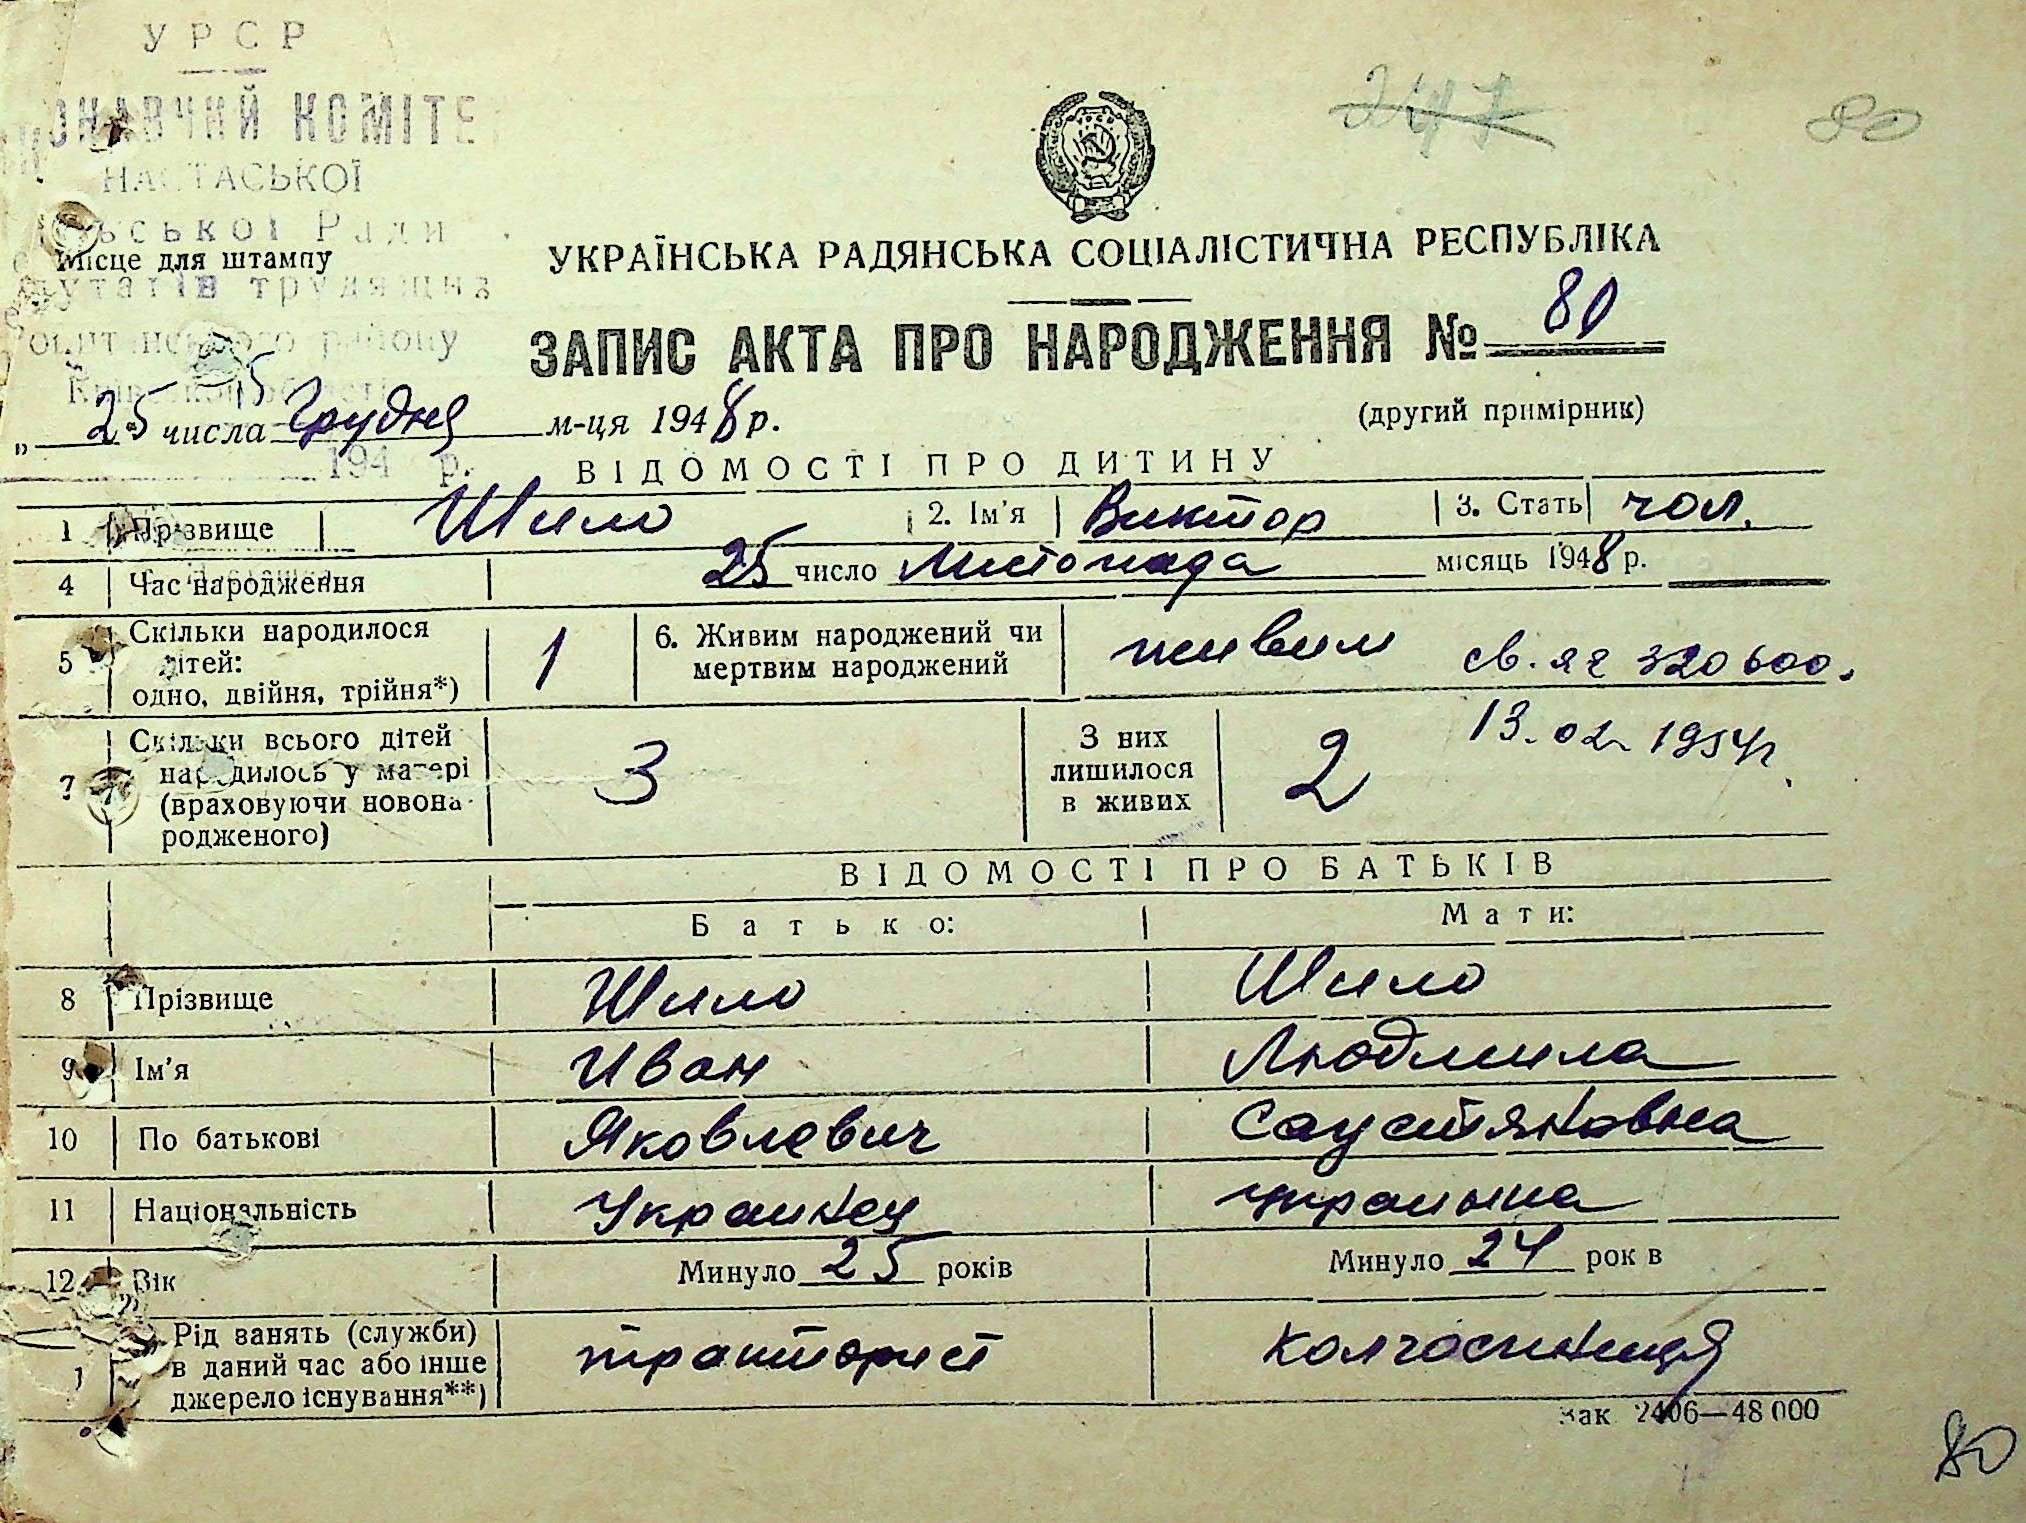 УРСР
КОМІТЕ
НАСТАСЬКОЇ
Ради
Місце для штампу
трудящих
району
247
80
УКРАЇНСЬКА РАДЯНСЬКА СОЦІАЛІСТИЧНА РЕСПУБЛІКА
ЗАПИС АКТА ПРО НАРОДЖЕННЯ № 80
(другий примірник)
„ 25 числа Грудня м-ця 1948 р.
194 р.
ВІДОМОСТІ ПРО ДИТИНУ
1 Прізвище Шило 2. Ім'я Виктор 3. Стать чол.
4 Час народження 25 число Листопада місяць 1948 р.
5 Скільки народилося дітей: одно, двійня, трійня*) 1 6. Живим народжений чи мертвим народжений живим св. яг 320600.
7 Скільки всього дітей народилось у матері (враховуючи новона- родженого) 3 З них лишилося в живих 2 13.02.1954р.
ВІДОМОСТІ ПРО БАТЬКІВ
Батько: Мати:
8 Прізвище Шило Шило
9 Ім'я Иван Людмила
10 По батькові Яковлевич Саустяновна
11 Національність Украинец украинка
12 Вік Минуло 25 років Минуло 24 рок в
1 Рід занять (служби) в даний час або інше джерело існування**) тракторист колгоспниця
Зак 2406—48 000
80